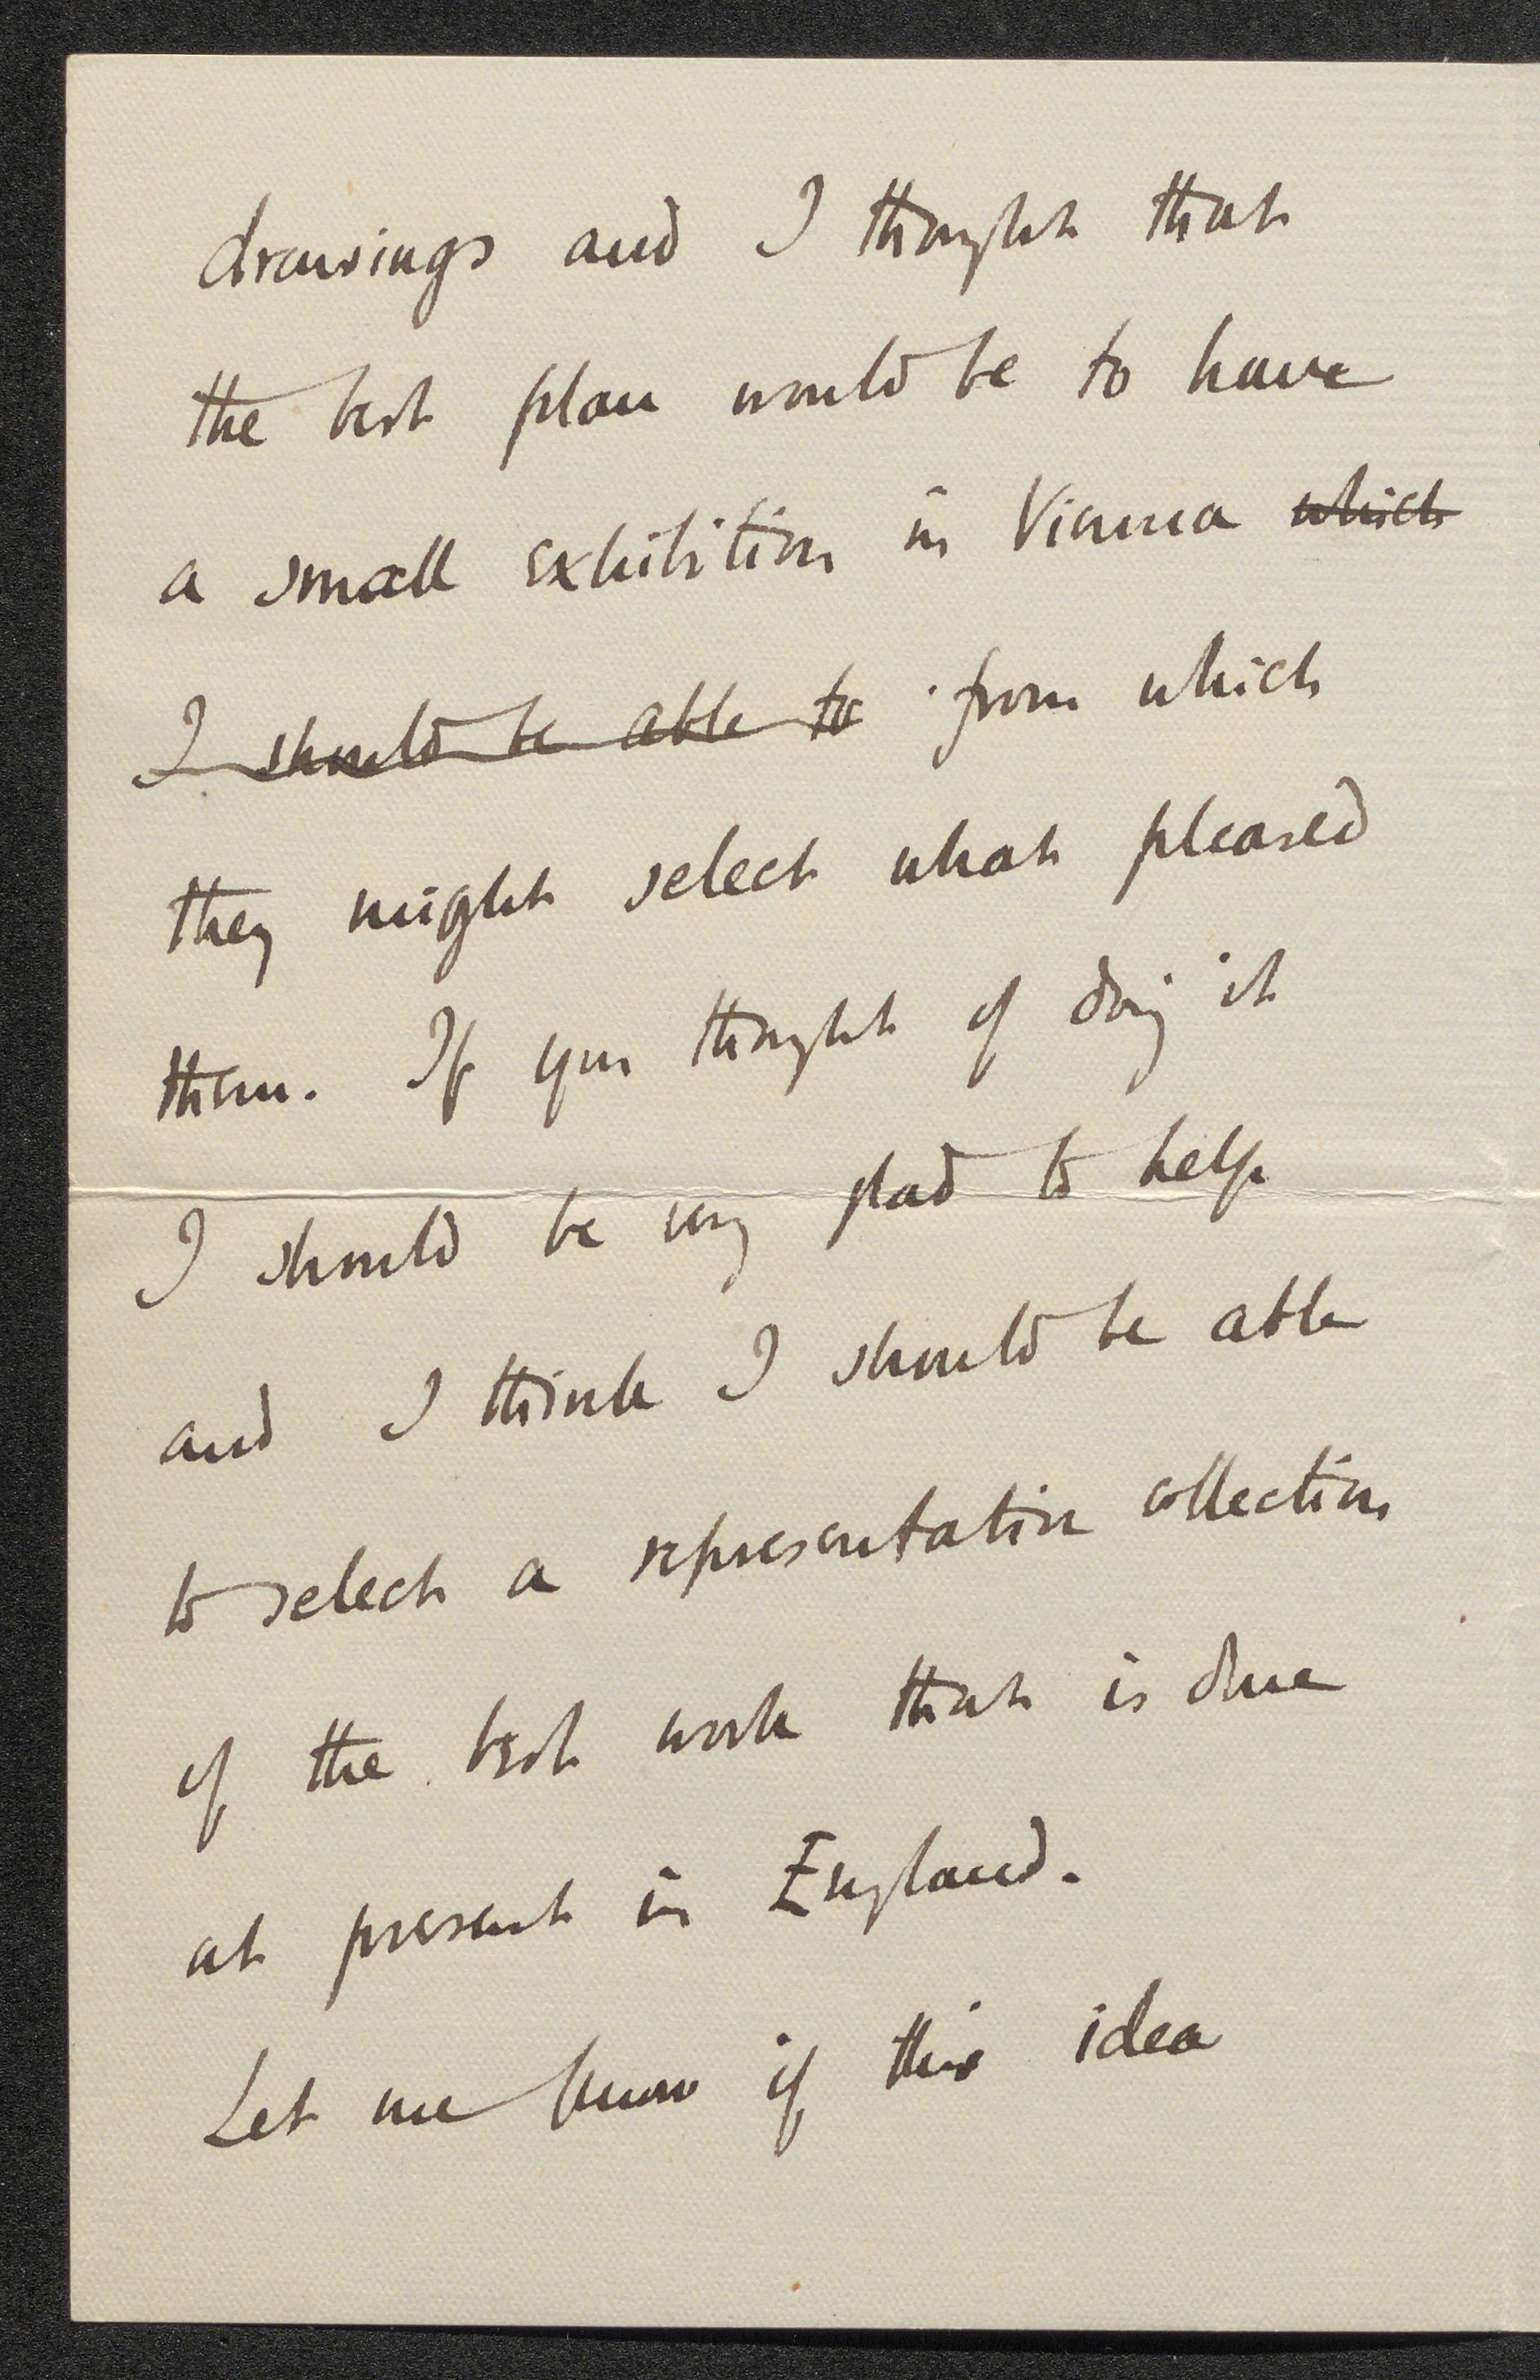 drawings and I thought that
the best plan would be to have
a small exhibition in Vienna which
I should be able to from which
they might select what pleased
them. If you thought of doing it
I should be very glad to help
and I think I should be able
to select a representative collection
of the best work that is done
at present in England.
Let me know if this idea